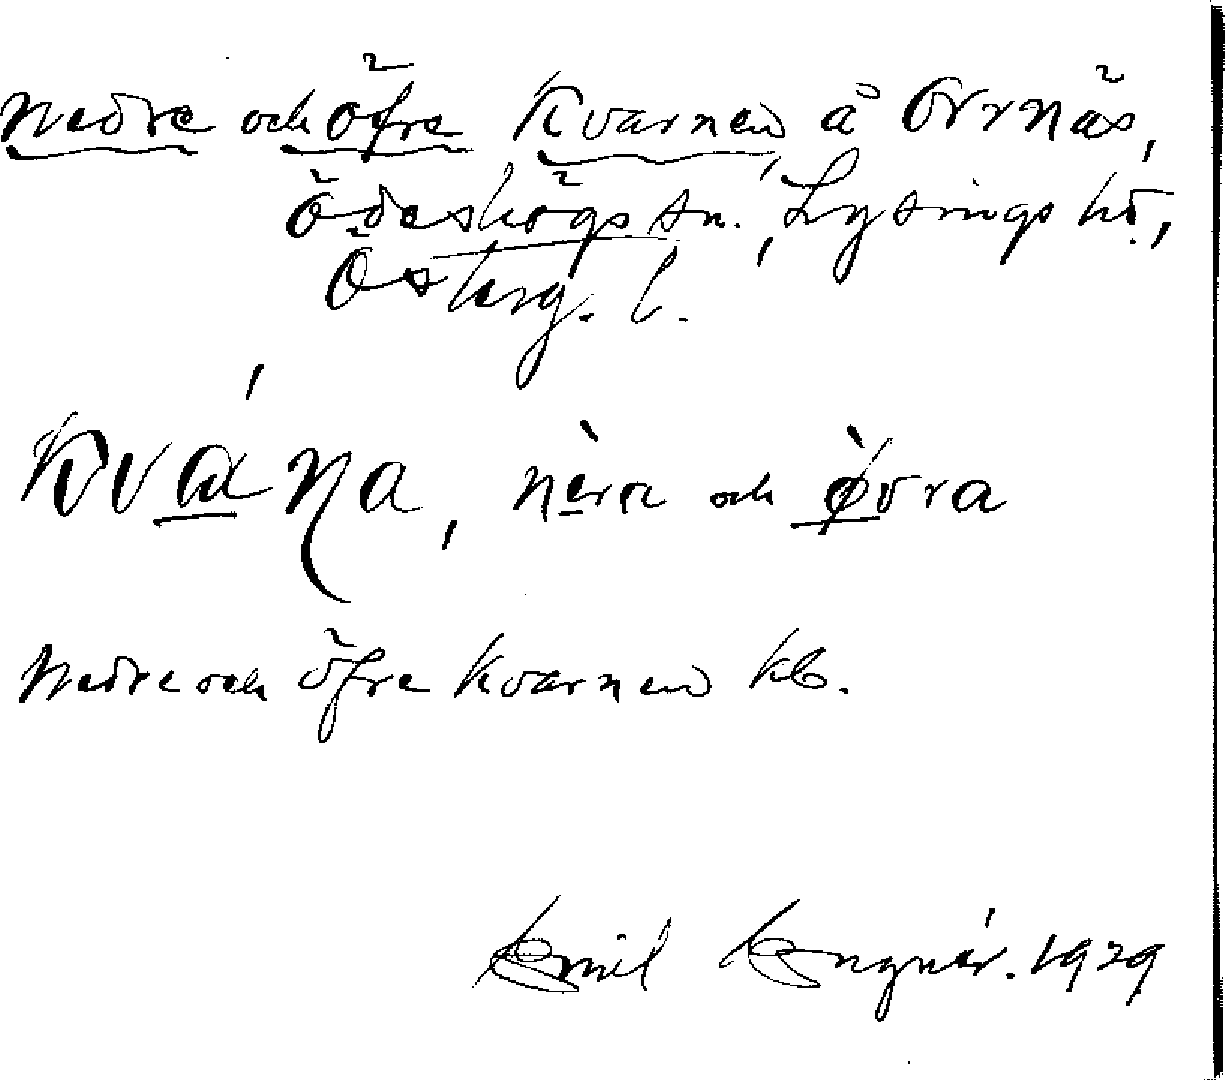 Nedre och öfre Kvarnen å Orrnäs,
Ödeshögs sn., Lysings hd.,
Österg. l.
Kvána, nèra och ø̀vra
Nedre och öfre Kvarnen kb.
Emil Engnér. 1929